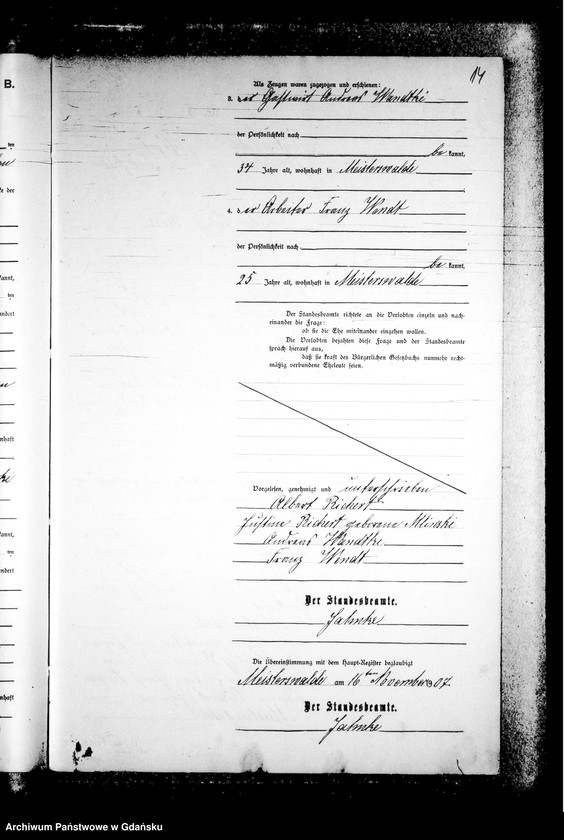 14
B.
Als Zeugen waren zugezogen und erschienen:
3. der Gastwirt Andreas Wandtke
der Persönlichkeit nach
be kannt,
34 Jahre alt, wohnhaft in Meisterswalde
4. der Arbeiter Franz Wendt
der Persönlichkeit nach
be kannt,
25 Jahre alt, wohnhaft in Meisterswalde
Der Standesbeamte richtete an die Verlobten einzeln und nach-
einander die Frage:
ob sie die Ehe miteinander eingehen wollen.
Die Verlobten bejahten diese Frage und der Standesbeamte
sprach hierauf aus,
daß sie kraft des Bürgerlichen Gesetzbuchs nunmehr recht-
mäßig verbundene Eheleute seien.
Vorgelesen, genehmigt und unterschrieben
Albert Richert
Justine Richert geborene
Andreas Wandtke
Franz Wendt
Der Standesbeamte.
Jahnke
Die Übereinstimmung mit dem Haupt-Register beglaubigt
Meisterswalde am 16ten November 1907.
Der Standesbeamte.
Jahnke
Archiwum Państwowe w Gdańsku